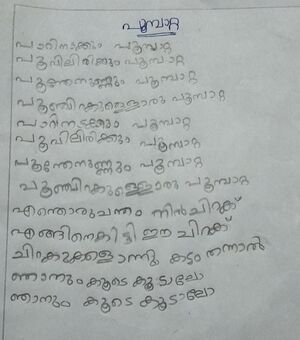 പൂമ്പാറ്റ
പാറിനടക്കും പൂമ്പാറ്റ
പൂവിലിരിക്കും പൂമ്പാറ്റ
പൂന്തേനുണ്ണും പൂമ്പാറ്റ
പൂഞ്ചിറകുള്ളൊരു പൂമ്പാറ്റ
പാറിനടക്കും പൂമ്പാറ്റ
പൂവിലിരിക്കും പൂമ്പാറ്റ
പൂന്തേനുണ്ണും പൂമ്പാറ്റ
പൂഞ്ചിറകുള്ളൊരു പൂമ്പാറ്റ
എന്തൊരുചന്തം നിൻചിറക്
എങ്ങിനെകിട്ടി ഈ ചിറക്
ചിറകുകളൊന്നു കടം തന്നാൽ
ഞാനും കൂടെ കൂടാലോ
ഞാനും കൂടെ കൂടാലോ